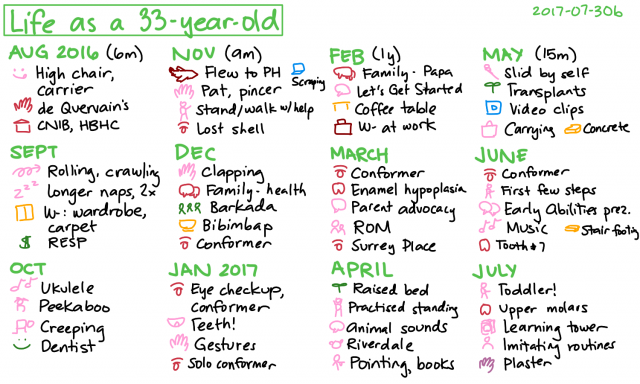 Life as a 33-year-old
2017-07-30b
AUG 2016 (6m)
High chair,
carrier
de Quervain's
CNIB, HBHC
SEPT
Rolling, crawling
Longer naps, 2x
W-: wardrobe,
carpet
RESP
OCT
Ukulele
Peekaboo
Creeping
Dentist
NOV (9m)
Flew to PH
Scraping
Pat, pincer
Stand/walk w/help
Lost shell
DEC
Clapping
Family - health
Barkada
Bibimbap
Conformer
JAN 2017
Eye checkup,
conformer
Teeth!
Gestures
Solo conformer
FEB (1y)
Family - Papa
Let's Get Started
Coffee table
W- at work
MARCH
Conformer
Enamel hypoplasia
Parent advocacy
ROM
Surrey Place
APRIL
Raised bed
Practised standing
Animal sounds
Riverdale
Pointing, books
MAY (15m)
Slid by self
Transplants
Video clips
Carrying
Concrete
JUNE
Conformer
First few steps
Early Abilities prez.
Music
Stair footing
Tooth #7
JULY
Toddler!
Upper molars
Learning tower
Imitating routines
Plaster